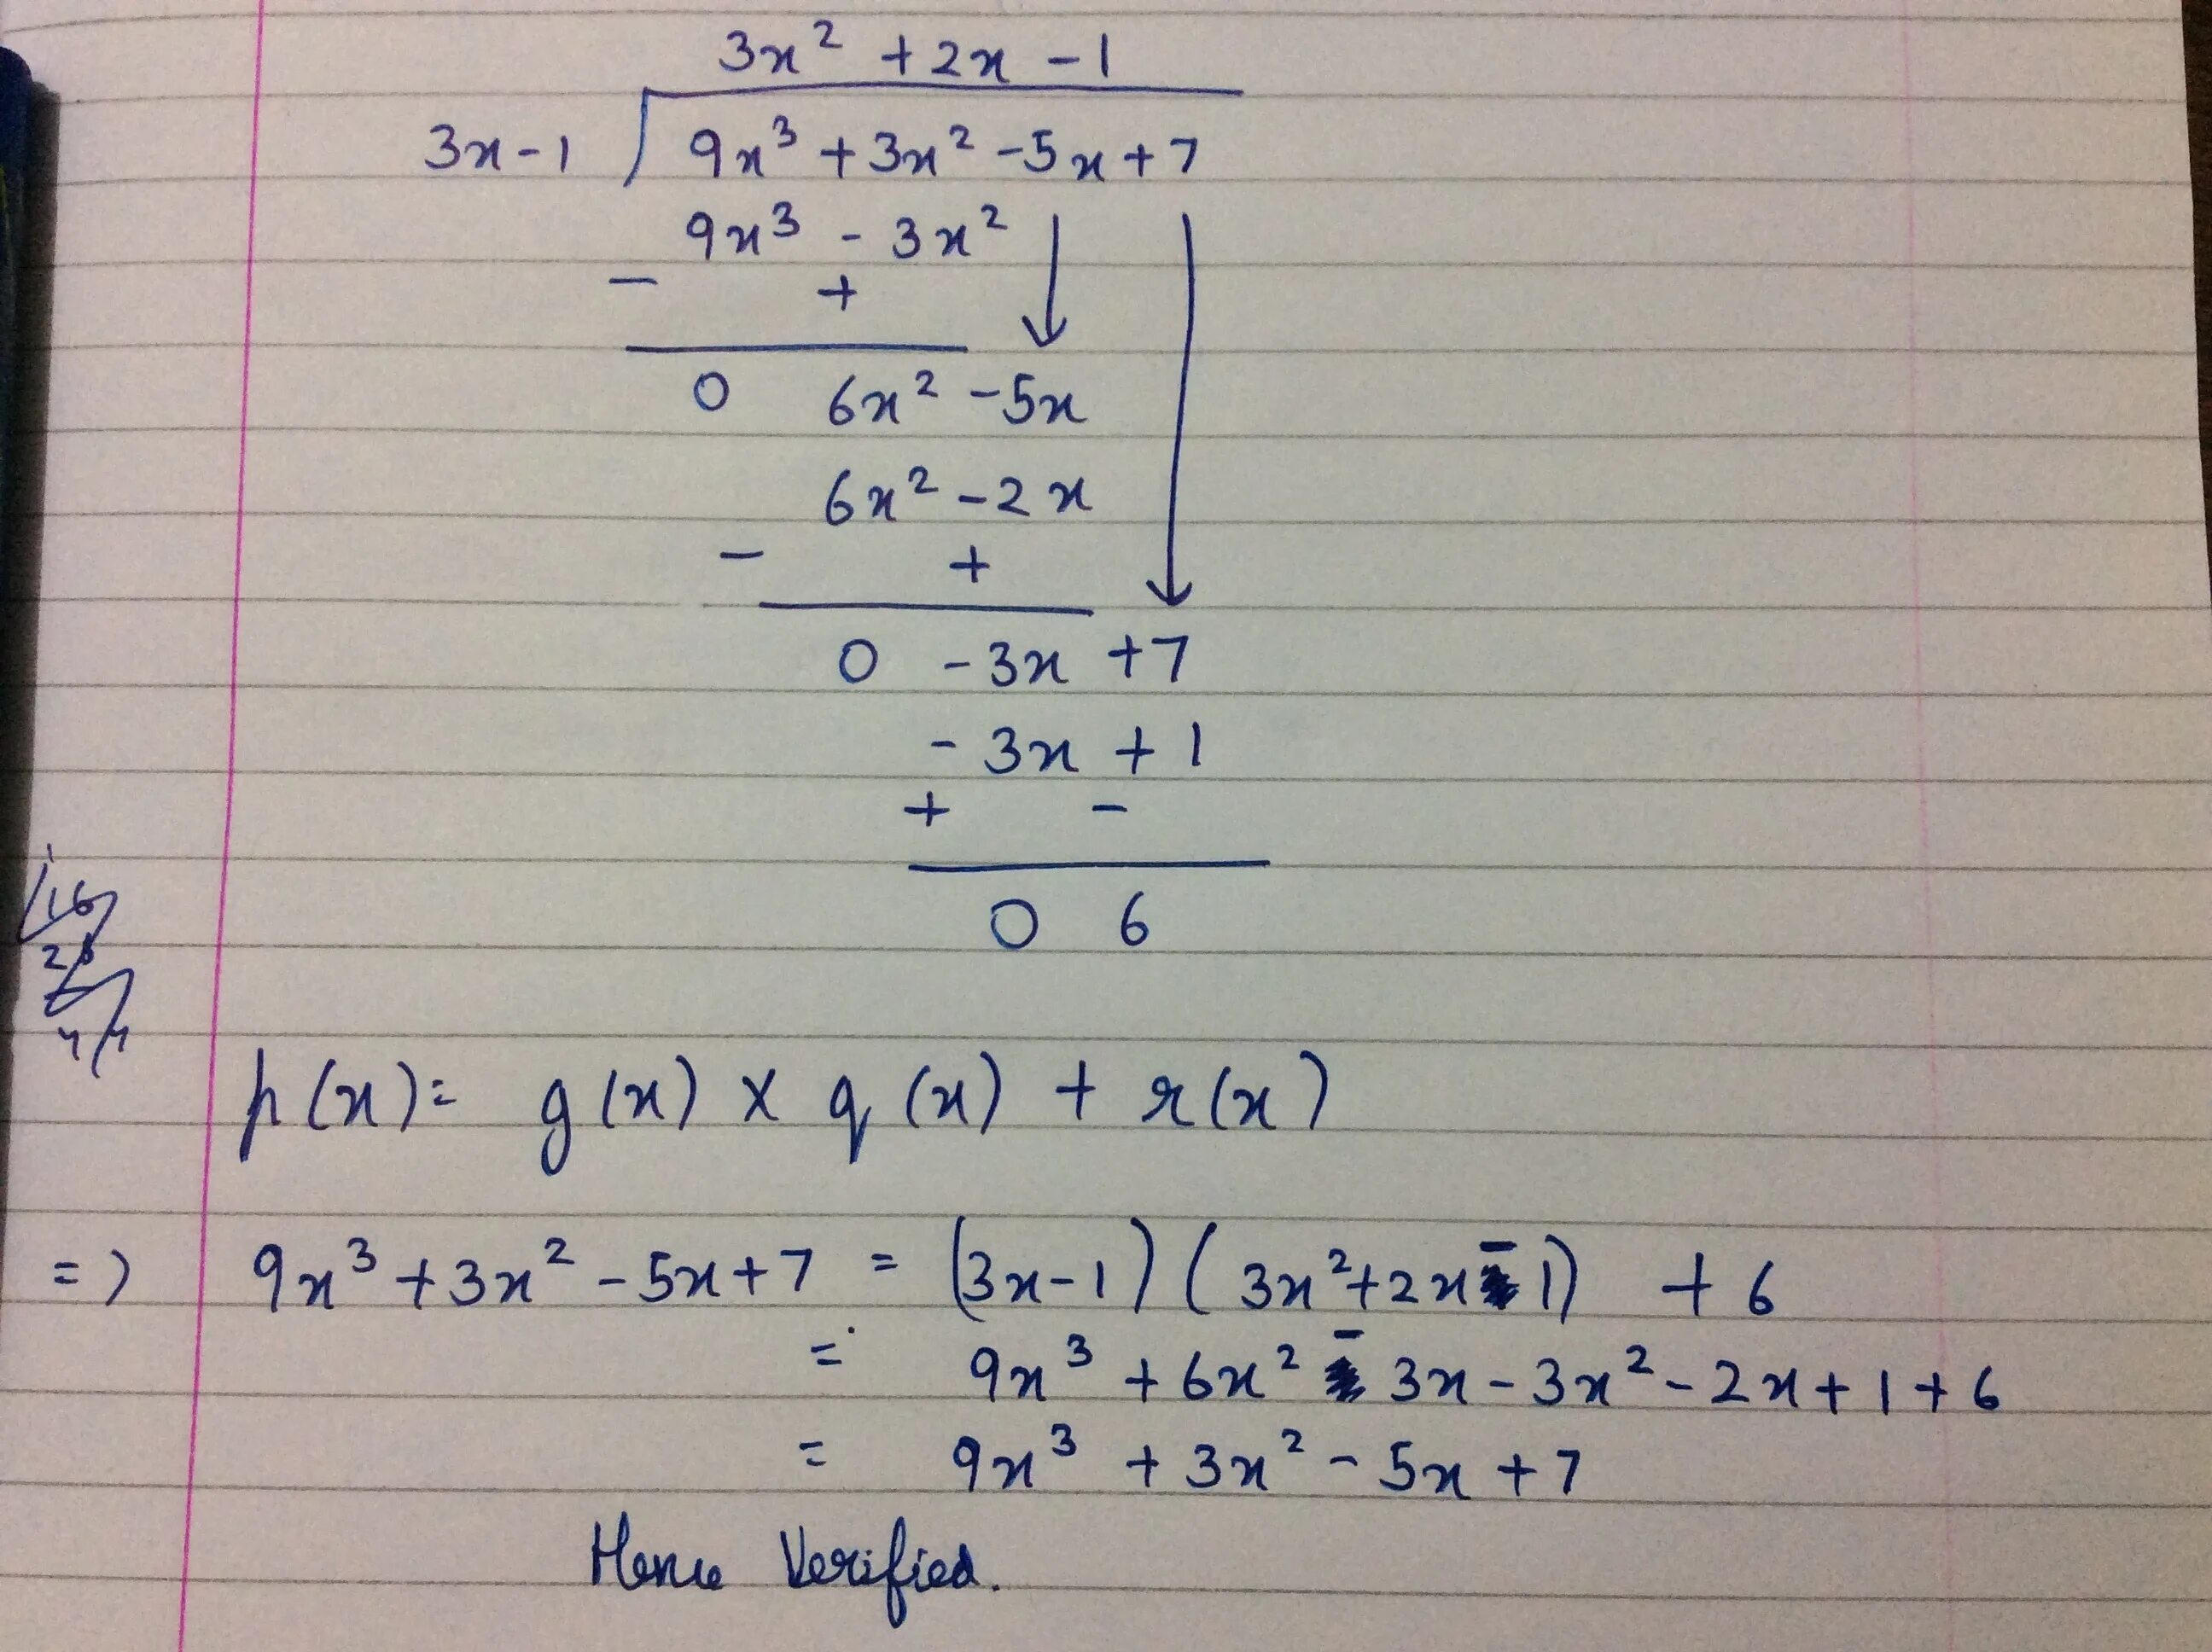 3x² + 2x - 1
3x - 1 9x³ + 3x² - 5x + 7
9x³ - 3x²
- +
0 6x² - 5x
6x² - 2x
- +
0 - 3x + 7
- 3x + 1
+ -
0 6
p(x) = g(x) × q(x) + r(x)
=> 9x³ + 3x² - 5x + 7 = (3x - 1) (3x² + 2x - 1) + 6
= 9x³ + 6x² - 3x - 3x² - 2x + 1 + 6
= 9x³ + 3x² - 5x + 7
Hence Verified.